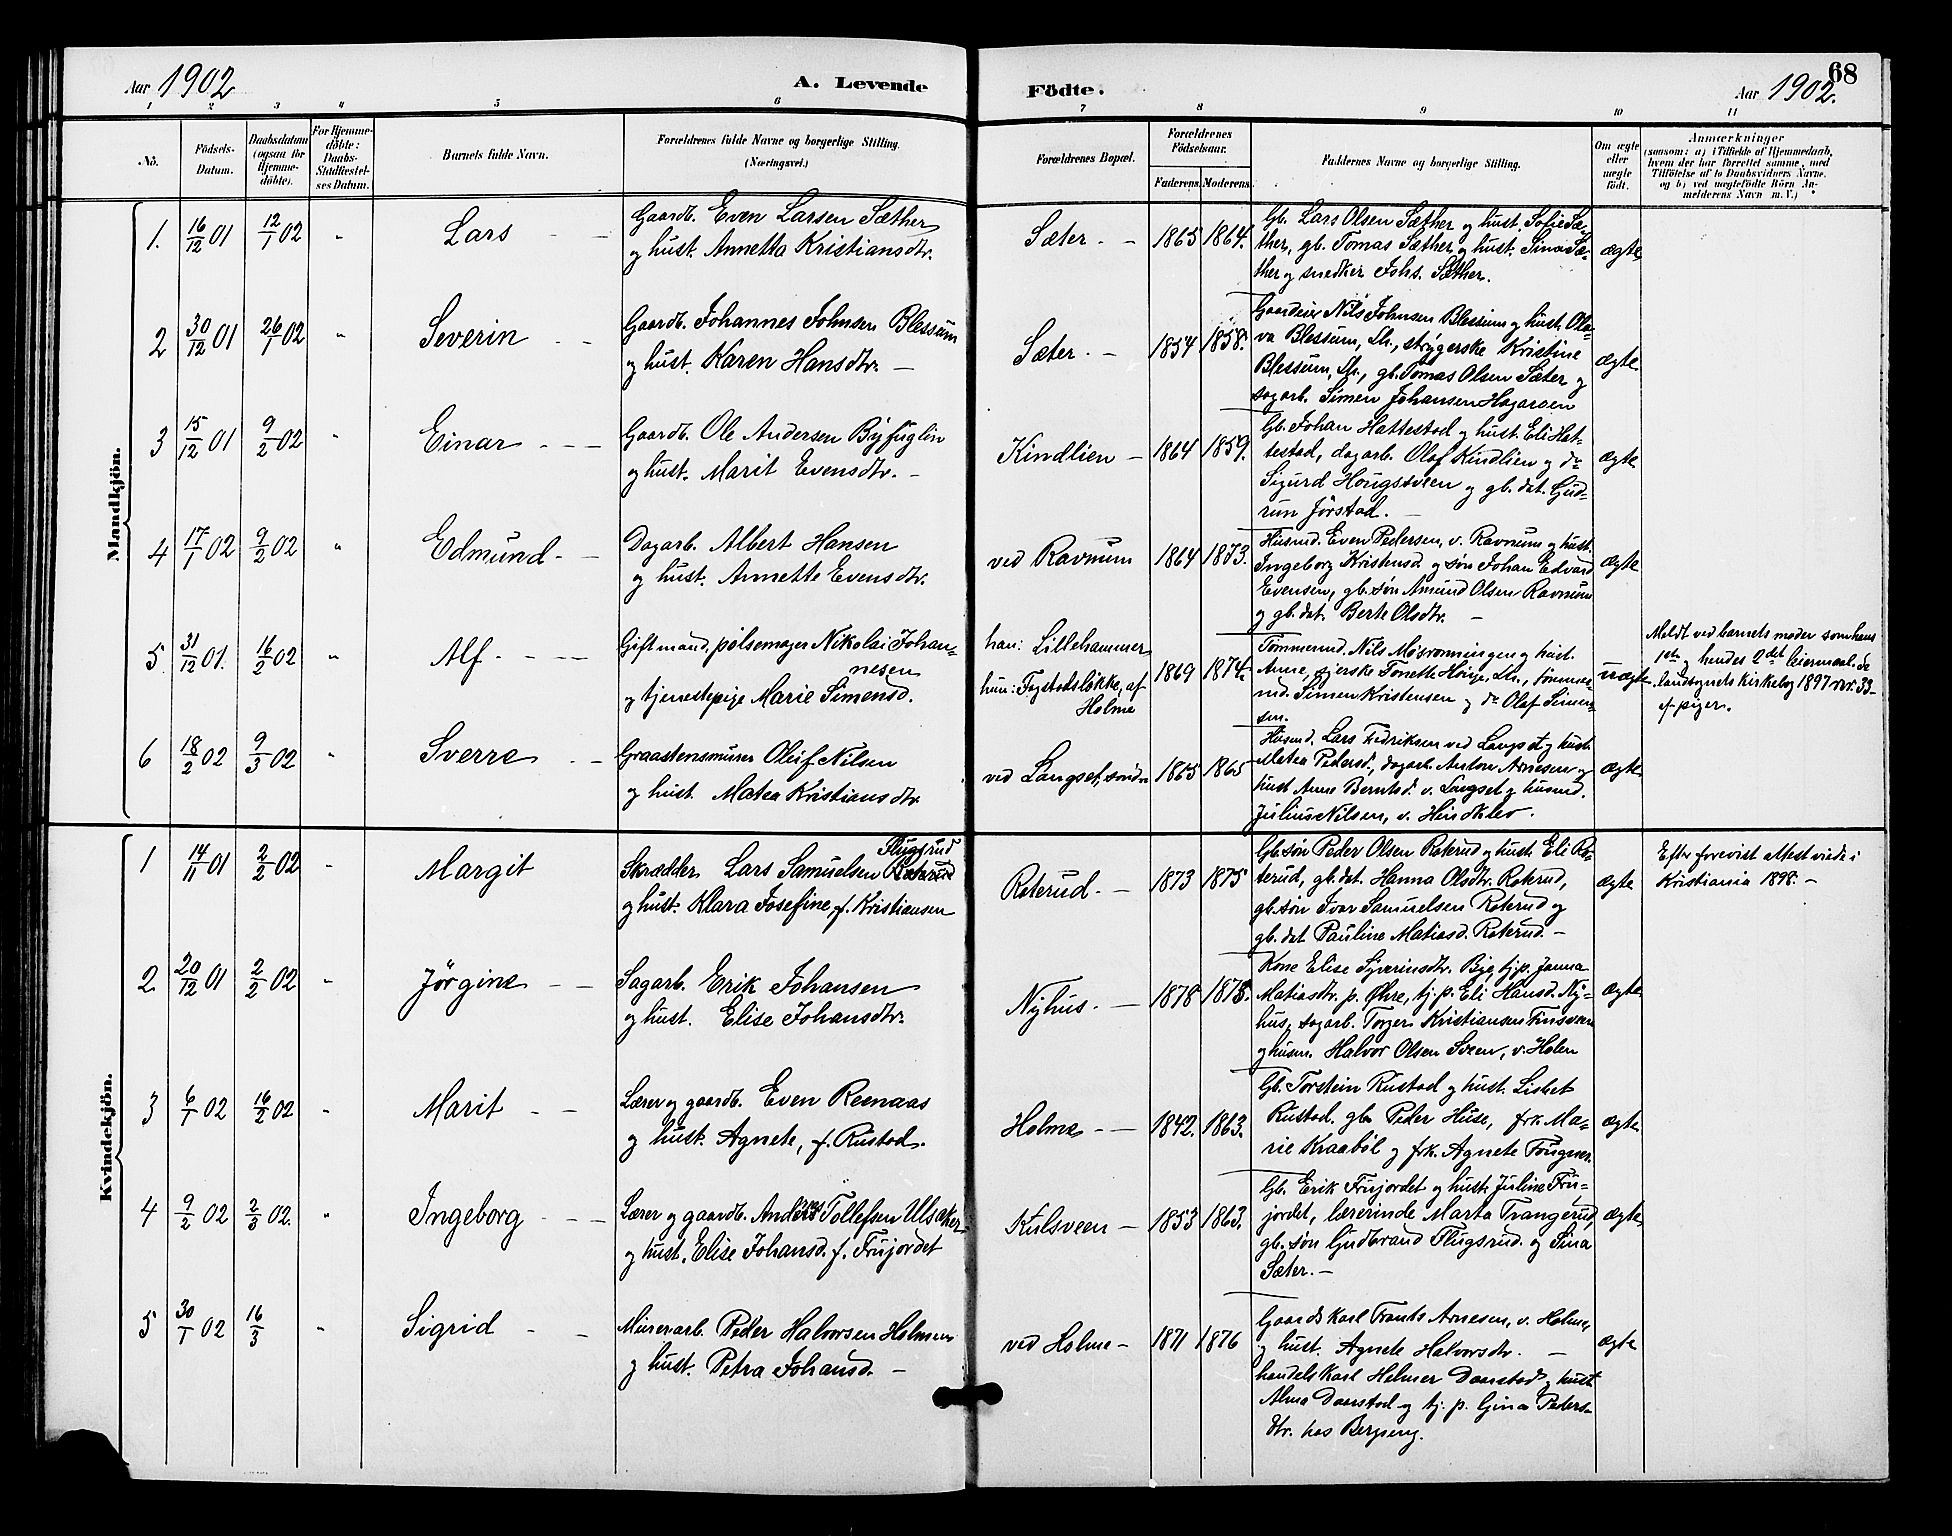 Aar 1902
A. Levende
Födte.
Aar 1902.
68
1 2 3 4 5 6 7 8 9 10 11
No.
Födsels-
Datum.
Daabsdatum
(ogsaa for
Hjemme-
döbte).
For Hjemme-
döbte:
Daabs-
Stadfæstel-
ses Datum.
Barnets fulde Navn.
Forældrenes fulde Navne og borgerlige Stilling.
(Næringsvei.)
Forældrenes Bopæl.
Forældrenes
Födselsaar.
Faderens. Moderens.
Faddernes Navne og borgerlige Stilling.
Om ægte
eller
uægte
födt.
Anmærkninger
(saasom: a) i Tilfælde af Hjemmedaab,
hvem der har forrettet samme, med
Tilföielse af to Daabsvidners Navne,
og b) ved uægtefödte Börn An-
melderens Navn m. V.)
Mandkjön.
1. 16/12 01 12/1 02 " Lars
Gaardb. Even Larsen Sæther
og hust. Annetta Kristiansdtr.
Sæter. 1865 1864.
Gb. Lars Olsen Sæther og hust. Sofie Sæ-
ther, gb. Tomas Sæther og hust. Sina Sæ-
ther og snedker Johs. Sæther.
ægte
2 30/12 01 26/1 02 " Severin
Gaardb. Johannes Johnsen Blessum
og hust. Karen Hansdtr.
Sæter. 1854 1858.
Gaardeier Nils Johnsen Blessum og hust. Ola-
va Blessum, Lh., strygerske Kristine
Blessum, Lh., gb. Tomas Olsen Sæter og
sagarb. Simen Johansen Hagaroen
ægte
3 15/12 01 9/2 02 " Einar
Gaardb. Ole Andersen Byfuglin
og hust. Marit Evensdtr.
Kindlien 1864 1859.
Gb. Johan Hattestad og hust. Eli Hat-
testad, dagarb. Olaf Kindlien og do
Sigurd Hougsveen og gb. dat. Gud-
run Jörstad.
ægte
4 17/1 02 9/2 02 " Edmund
Dagarb. Albert Hansen
og hust. Annette Evensdtr.
ved Ravnum 1864 1873.
Husmd. Even Pedersen, v. Ravnum og hust.
Ingeborg Kristensd. og søn Johan Edvard
Evensen, gb. søn Amund Olsen Ravnum
og gb. dat. Berte Olsdtr.
ægte
5 31/12 01. 16/2 02 " Alf
Gift mand, pølsemager Nikolai Johan-
nesen
og tjenestepige Marie Simensd.
han: Lillehammer
hun: Fagstadsløkke, af
Holme
1869 1874.
Tømmermd. Nils Mosrønningen og hust.
Anne, syerske Tonette Honge, Lh., tømmer-
md. Simen Kristensen og do Olaf Simen-
sen.
uægte
Meldt ved barnets moder som hans
1ste og hendes 2det leiermaal. se
landsognets kirkebog 1897 nr. 33
af piger.
6 18/2 02 9/3 02 " Sverre
Graastensmurer Oluf Nilsen
og hust. Matea Kristiansdtr.
ved Langset, søndre 1865 1865
Husmd. Lars Fredriksen ved Langset og hust.
Matea Pedersd., dagarb. Anton Arnesen og
hust Anne Berntsd. v. Langset og husmd.
Julius Nilsen, v. Hindklev.
ægte
Kvindekjön.
1 14/11 01 2/2 02 " Margit
Flugsrud
Skrædder Lars Samuelsen Roterud
og hust. Klara Josefine f. Kristiansen
Roterud. 1873 1875
Gb. søn Peder Olsen Roterud og hust. Eli Ro-
terud, gb. dat. Hanna Olsdtr. Roterud,
gb. søn Ivar Samuelsen Roterud og
gb. dat Pauline Matiasd. Roterud.
ægte
Efter forevist attest viede i
Kristiania 1898.
2 20/12 01 2/2 02 " Jörgine
Sagarb. Erik Johansen
og hust. Elise Johansdtr.
Nyhus. 1878 1878.
Kone Elise Syverinsdtr. Bye, tj.p. Janna
Matiasdtr. p. Øhre, tj. p. Eli Hansd. Ny-
hus, sagarb. Torger Kristiansen Finsveen
og husm. Halvor Olsen Sveen, v. Holen
ægte
3 6/1 02 16/2 02 " Marit
Lærer og gaardb. Even Reenaas
og hust. Agnete, f. Rustad.
Holme 1842. 1863.
Gb. Torstein Rustad og hust. Lisbet
Rustad. gb. Peder Huse, frk. Ma-
rie Kraaböl og frk. Agnete Fougner.
ægte
4 9/2 02 2/3 02. " Ingeborg
Lærer og gaardb. Anders Tollefsen Ulsaker
og hust. Elise Johansd. f. Frujordet
Kulsveen 1853 1863.
Gb. Erik Frujordet og hust. Juline Fru-
jordet, lærerinde Marta Trangerud,
gb. søn Gudbrand Flugsrud og Sina
Sæter.
ægte
5 30/1 02 16/3 " Sigrid
Murerarb. Peder Halvorsen Holmen
og hust. Petra Johansd.
ved Holme 1871 1876
Gaardskarl Frants Arnesen, v. Holme,
og hust. Agnete Halvorsdtr.
handelskarl Helmer Daarstad og hust
Alma Daarstad og tj. p. Gina Peders-
dtr. hos Bergseng.
ægte